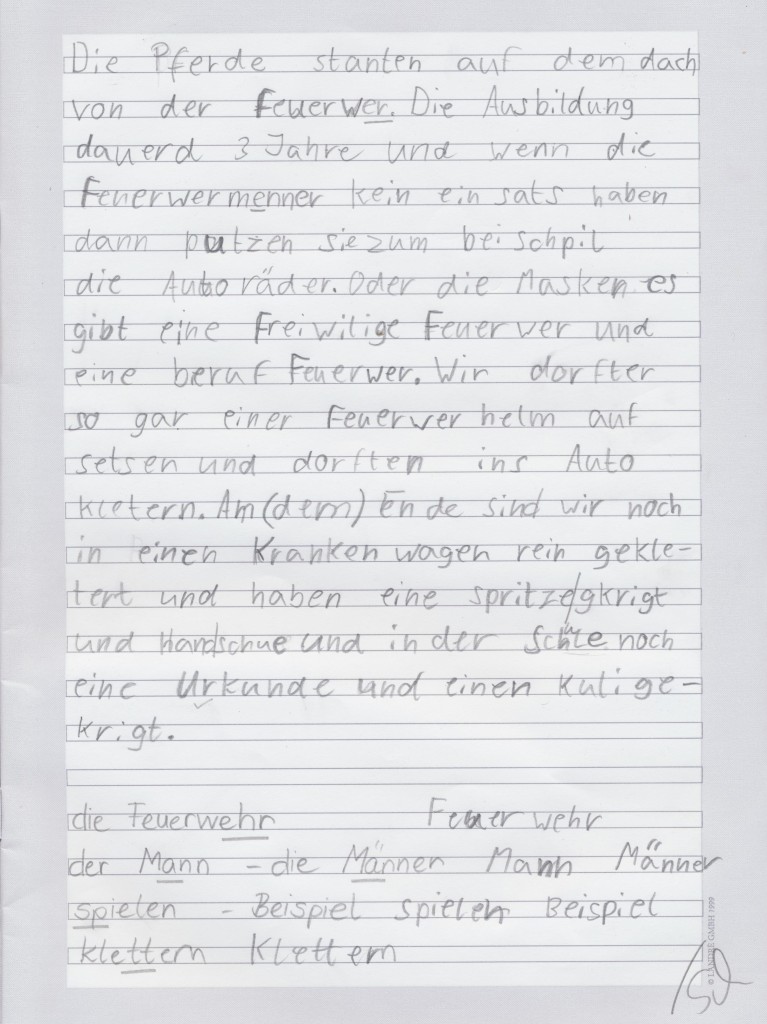 Die Pferde stanten auf dem dach
von der Feuerwer. Die Ausbildung
dauerd 3 Jahre und wenn die
Feuerwermenner kein ein sats haben
dann putzen sie zum bei schpil
die Auto räder. Oder die Masken es
gibt eine Freiwilige Feuer wer und
eine beruf Feuerwer. Wir dorften
so gar einer Feuerwer helm auf
setsen und dorften ins Auto
kletern. Am (dem) Ende sind wir noch
in einen Kranken wagen rein gekle-
tert und haben eine spritze/gkrigt
und Handschue und in der Schule noch
eine Urkunde und einen Kuli ge-
krigt.
die Feuerwehr Feuer wehr
der Mann - die Männer Mann Männer
spielen - Beispiel spielen Beispiel
klettern Klettern
© LANDRE GMBH 1999